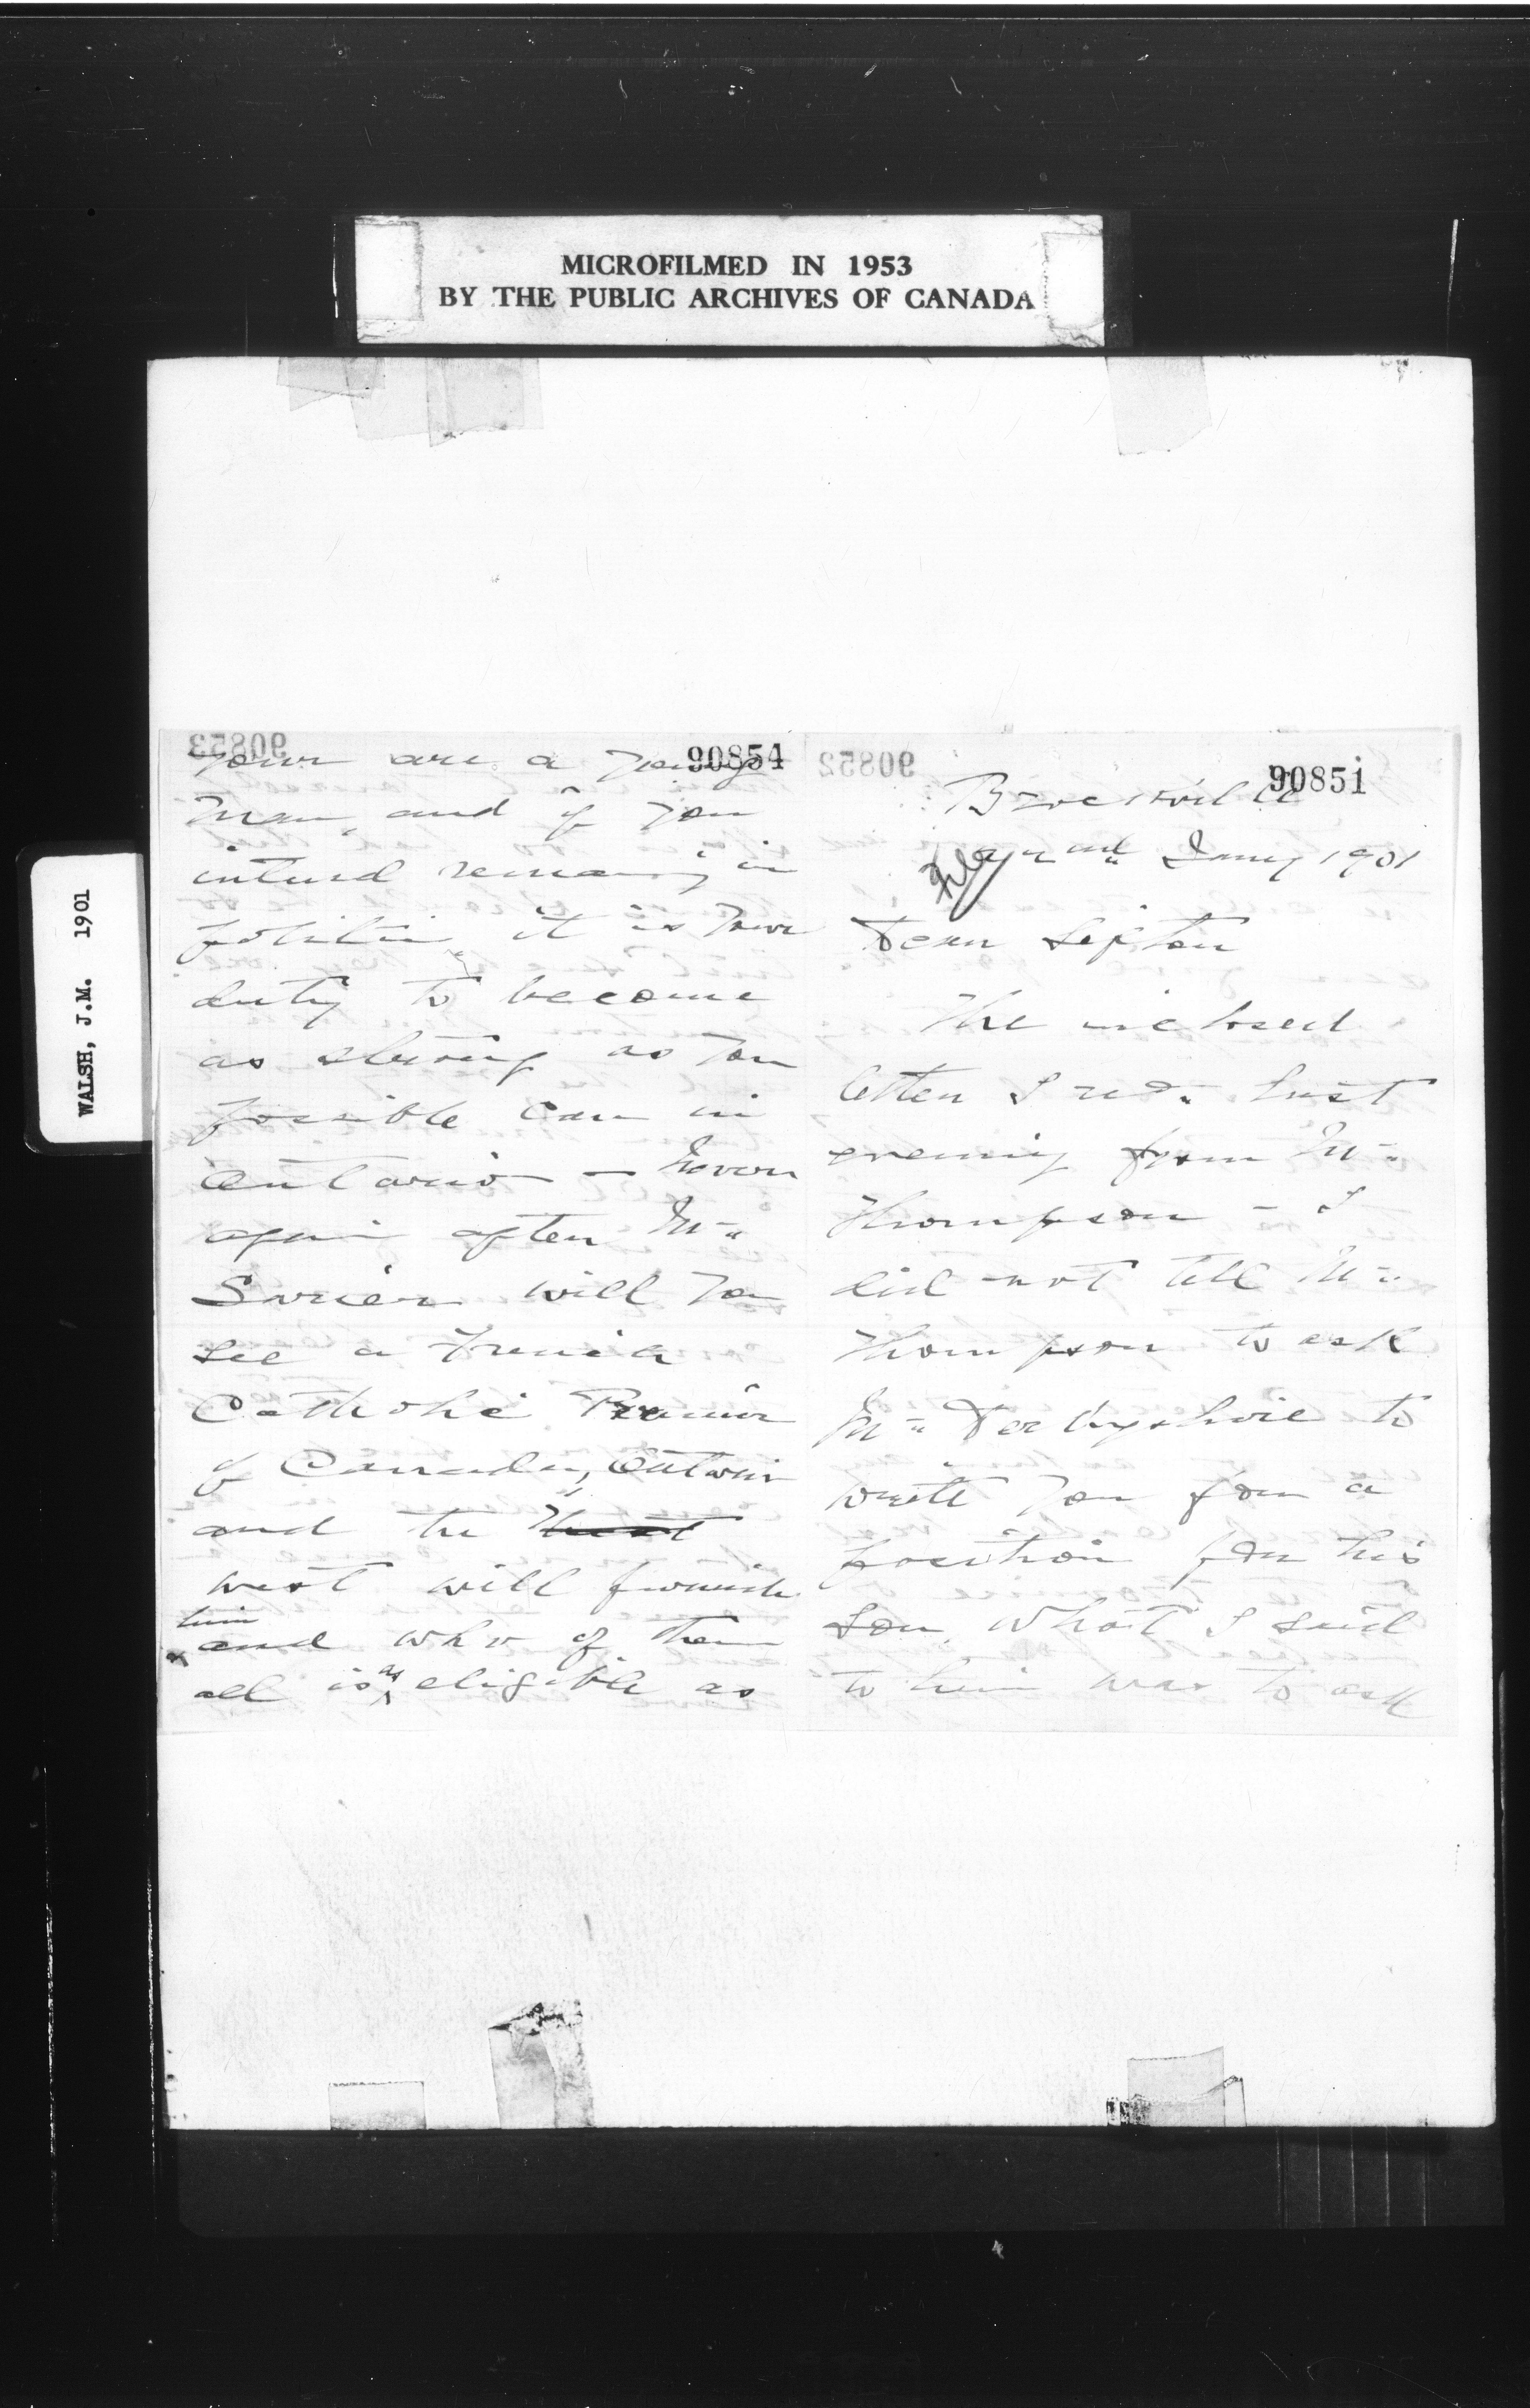 MICROFILMED IN 1953
BY THE PUBLIC ARCHIVES OF CANADA
WALSH, J.M. 1901
90853
90854
your are a young
man, and if you
intend remaing in
politics it is your
duty to become
as strong as you
possible can in
Ontario —
again after Mr
will you
see a French
Catholic Premier
of Canada, Ontario
and the
west will furnish
him
and who of them
all is as eligible as
90852
90851
Brockville
22nd Jany 1901
File
Dear Sifton
The inclosed
letter I recd last
evening from Mr
Thompson - I
did not tell Mr
Thompson to ask
Mr Derbyshire to
write you for a
position for his
son. What I said
to him was to ask